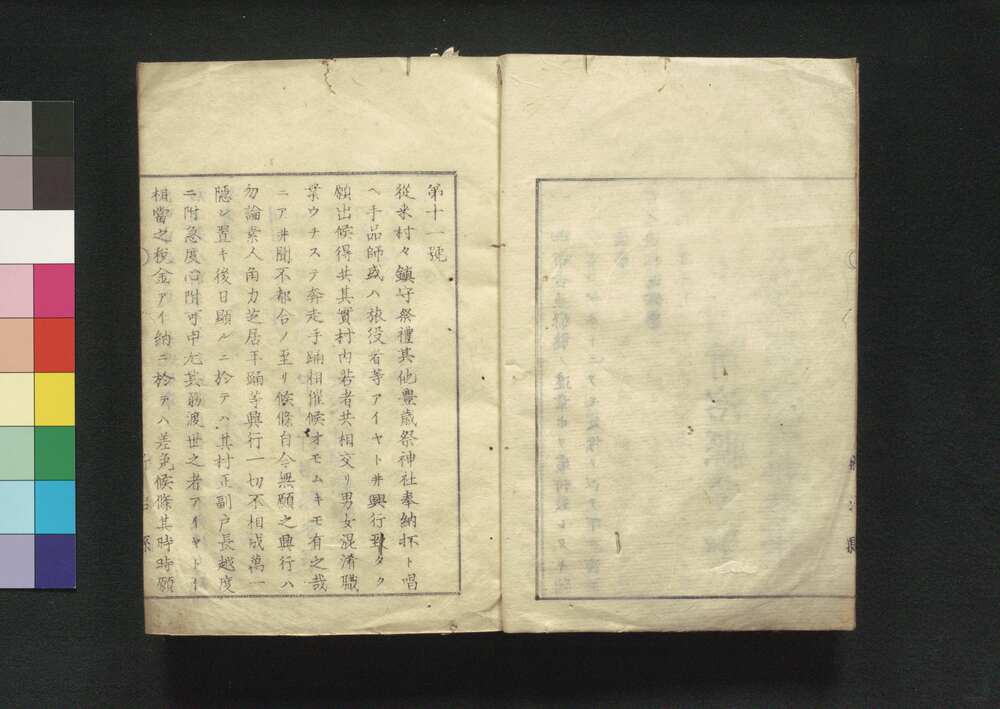 第十一號
從来村々鎮守祭禮其他豊歳祭神社奉納抔ト唱
ヘ手品師或ハ旅役者等アイヤトヰ興行致タク
願出候得共其實村内若者共相交リ男女混淆職
業ウチステ奔走手踊相催候オモムキモ有之哉
ニアヰ聞不都合ノ至リ候條自今無願之興行ハ
勿論素人角力芝居手踊等興行一切不相成萬一
隠シ置キ後日顕ルニ於テハ其村正副戸長越度
ニ附急度心附可申尤其筋渡世之者アイヤトヰ
相當之税金アイ納ニ於テハ差免候條其時時願